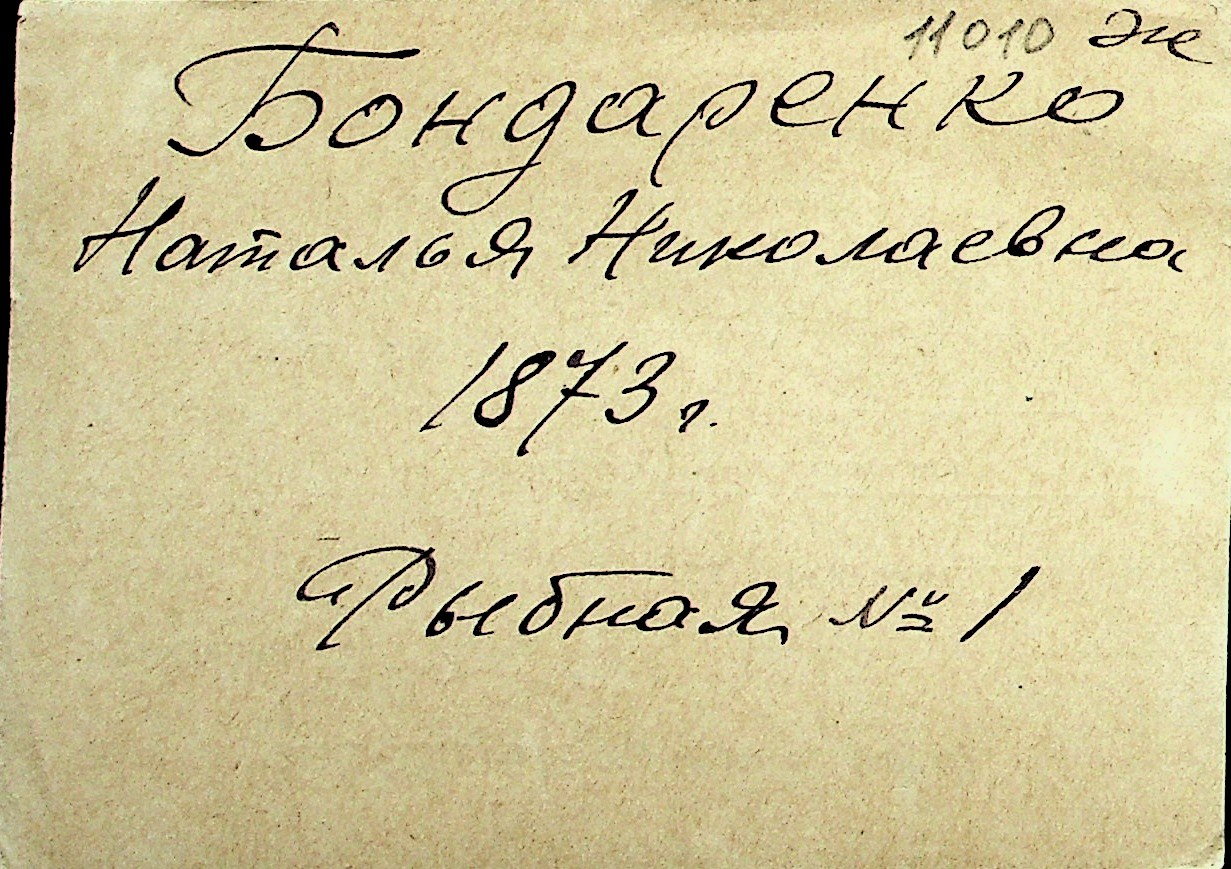 11010 ж
Бондаренко
Наталья Николаевна
1873 г.
Рыбная, № 1